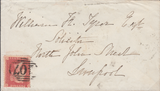 William H. Tyson Esq
Solicitor
North John Street
Liverpool